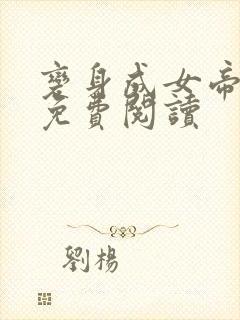 变身成女帝
免費閱讀
劉楊